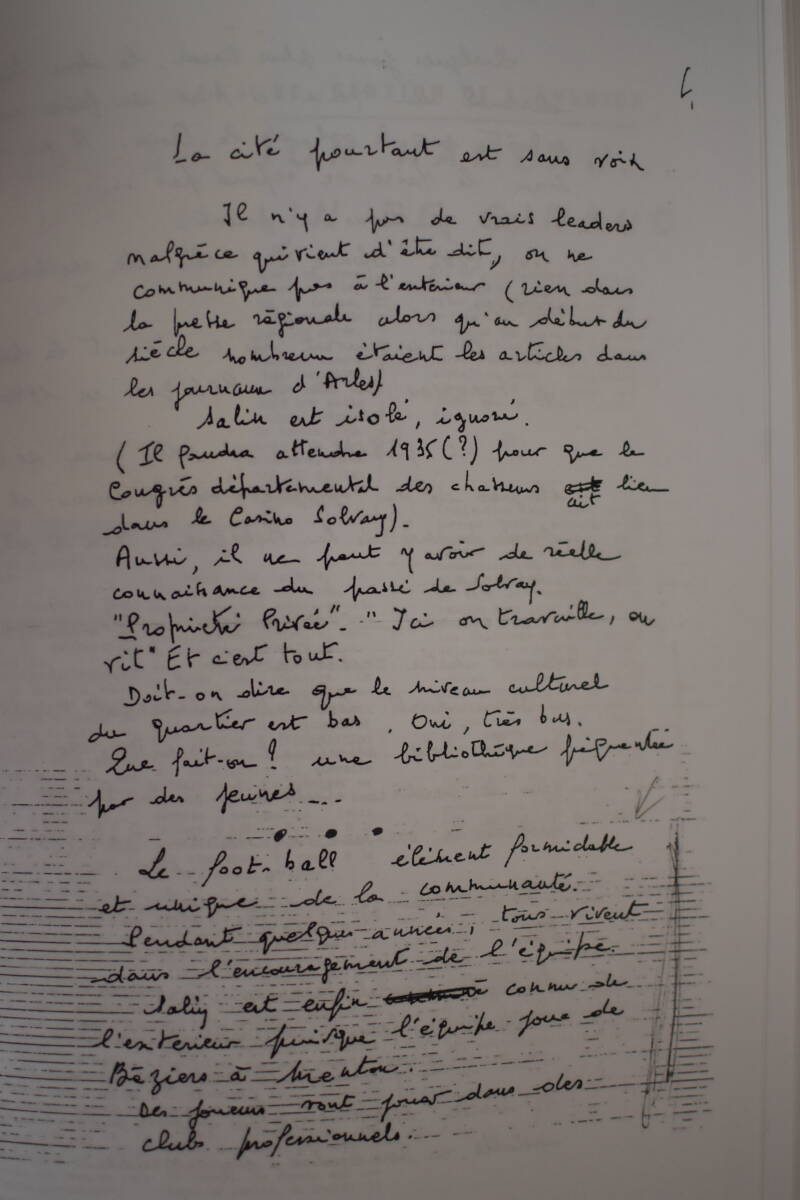 La cité pourtant est sans voix
Il n'y a pas de vrais leaders
malgré ce qui vient d'être dit, on ne
communique pas à l'extérieur (rien dans
la presse régionale alors qu'au début du
siècle nombreux étaient les articles dans
les journaux d'Arles)
Salin est isolé, ignoré.
(Il faudra attendre 1935(?) pour que le
Congrès départemental des chasseurs ait lieu
dans le Casino Solvay).
Aussi, il ne peut y avoir de réelle
connaissance du passé de Solvay.
"Propriété Privée"- "Ici on travaille, on
vit" Et c'est tout.
Doit-on dire que le niveau culturel
du quartier est bas. Oui, très bas.
Que fait-on? une bibliothèque fréquentée
par des jeunes...
Le foot-ball élément formidable
et unique de la communauté.
Pendant quelques années, tous vivent
dans l'encouragement de l'équipe.
Salin est enfin connu de
l'exterieur puisque l'équipe joue de
Béziers à Menton.
Des joueurs vont jouer dans des
clubs professionnels.